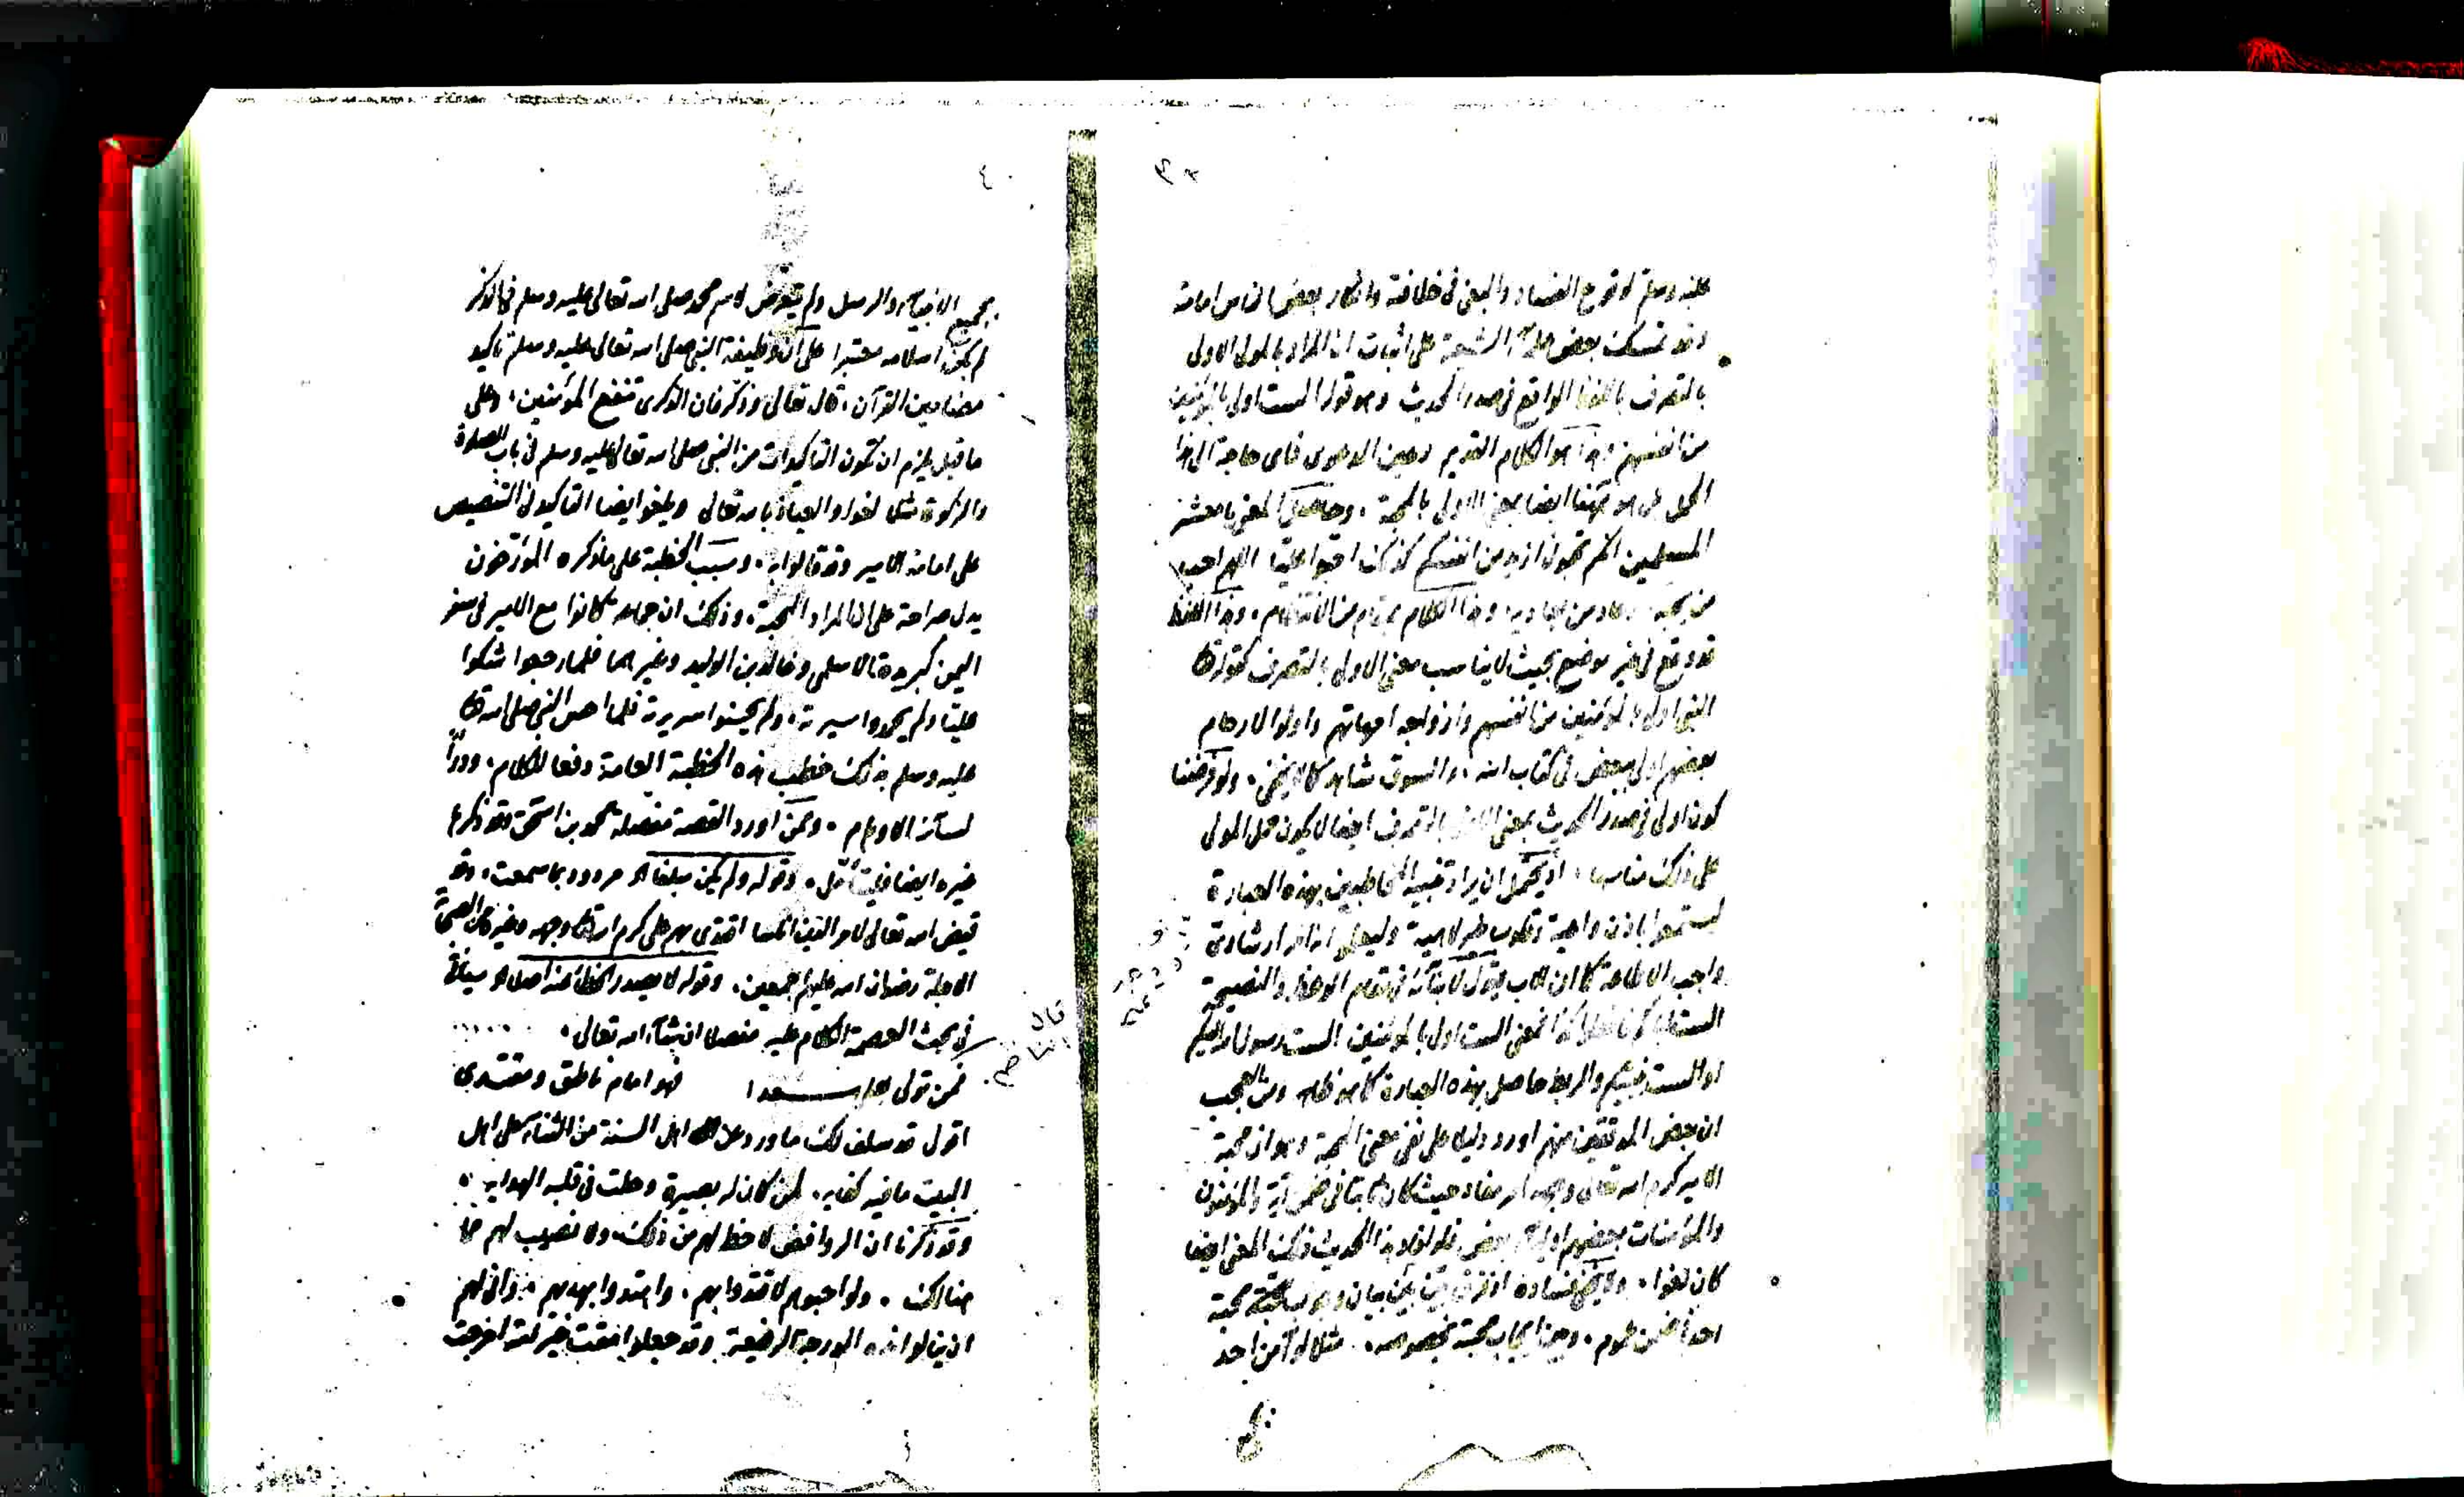 عليه وسلم لوقوع الفساد والبغي في خلافته وانكار بعض الناس امامته
وقد تمسك بعض علماء الشيعة على اثبات ان المراد بالمولى الاولى
بالتصرف باللفظ الواقع في صدر الحديث وهو قوله الست اولى بالمؤمنين
من انفسهم وهذا هو الكلام القديم وعين الدعوى فاى حاجة الى هذا
الحمل بل هو ههنا ايضا بمعنى الاولى بالمحبة، وحاصل المعنى يا معشر
المسلمين انكم تحبونى ازيد من انفسكم كذلك احبوا عليا اللهم احب
من يحبه وعاد من يعاديه وهذا الكلام بمقام من الانتظام، وهذا اللفظ
قد وقع في غير موضع بحيث لا يناسب معنى الاولى بالتصرف كقوله تعالى
النبى اولى بالمؤمنين من انفسهم وازواجه امهاتهم واولوا الارحام
بعضهم اولى ببعض في كتاب الله، والسوق شاهد كما لا يخفى، ولو فرضنا
كون اولى في صدر الحديث بمعنى الاولى بالتصرف ايضا لا يكون حمل المولى
على ذلك مناسبا، اذ يحتمل ان يراد تنبيه المخاطبين بهذه العبارة
ليستمعوا باذن واعية وقلوب غير لاهية وليعلموا ان امر ارشادى
واجب الاطاعة كما ان الاب يقول لابنائه في مقام الوعظ والنصيحة
الست اباكم فافعلوا كذا فمعنى الست اولى بالمؤمنين الست رسول الله اليكم
او الست نبيكم والربط حاصل بهذه العبارة كما هو ظاهر ومن العجب
ان بعض المدققين منهم اورد دليلا على نفى معنى المحبة وهو ان محبة
الامير كرم الله تعالى وجهه امر مفاد حيث كان ثابتا في ضمن آية والمؤمنون
والمؤمنات بعضهم اولياء بعض فلو افاد هذا الحديث ذلك المعنى ايضا
كان لغوا، ولا يخفى فساده اذ فرق بين بين بيان وجوب محبة
احد في ضمن عموم، وبين ايجاب محبة بخصوصه، مثلا لو آمن احد
بجميع الانبياء والرسل ولم يتعرض لاسم محمد صلى الله تعالى عليه وسلم في الذكر
لم يكن اسلامه معتبرا على ان وظيفة النبى صلى الله تعالى عليه وسلم تاكيد
مضامين القرآن، قال تعالى وذكر فان الذكرى تنفع المؤمنين، وعلى
ما قيل يلزم ان تكون التاكيدات من النبى صلى الله تعالى عليه وسلم في باب الصلوة
والزكوة مثلا لغوا والعياذ بالله تعالى ويلغوا ايضا التاكيد في التنصيص
على امامة الامير وقد قالوا به، وسبب الخطبة على ما ذكره المؤرخون
يدل صراحة على ان المراد المحبة، وذلك ان جماعة كانوا مع الامير في سفر
اليمن كبريدة الاسلمى وخالد بن الوليد وغيرهما فلما رجعوا شكوا
عليا ولم يحمدوا سيرته، ولم يحسنوا سريرته فلما احس النبى صلى الله تعالى
عليه وسلم بذلك خطب هذه الخطبة العامة دفعا للكلام، ودرأ
لسائر الاوهام، وممن اورد القصة مفصلة محمد بن اسحق وقد ذكرها
غيره ايضا فليتأمل، وقوله ولم يكن مبلغا الخ مردود بما سمعت، وقد
قيض الله تعالى لامر الذين اقتدى بهم على كرم الله تعالى وجهه وغيره من الصحابة
الاجلة رضوان الله عليهم اجمعين، وقوله لا يصدر الخطأ عنه اصلا الخ سيأتى
في بحث العصمة الكلام عليه مفصلا ان شاء الله تعالى،
قال الناظم
فمن تولى سعدا فهو امام ناطق ومقتدى
اقول قد سلف لك ما ورد عن اهل السنة من الثناء على اهل
البيت ما فيه كفاية، لمن كان له بصيرة وحلت في قلبه الهداية
وقد ذكرنا ان الروافض لا حظ لهم من ذلك، ولا نصيب لهم مما
هنالك، ولو احبوهم لاقتدوا بهم، واهتدوا بهديهم، وانى لهم
ان ينالوا هذه الدرجة الرفيعة وقد جعلوا امقت خير امة اخرجت